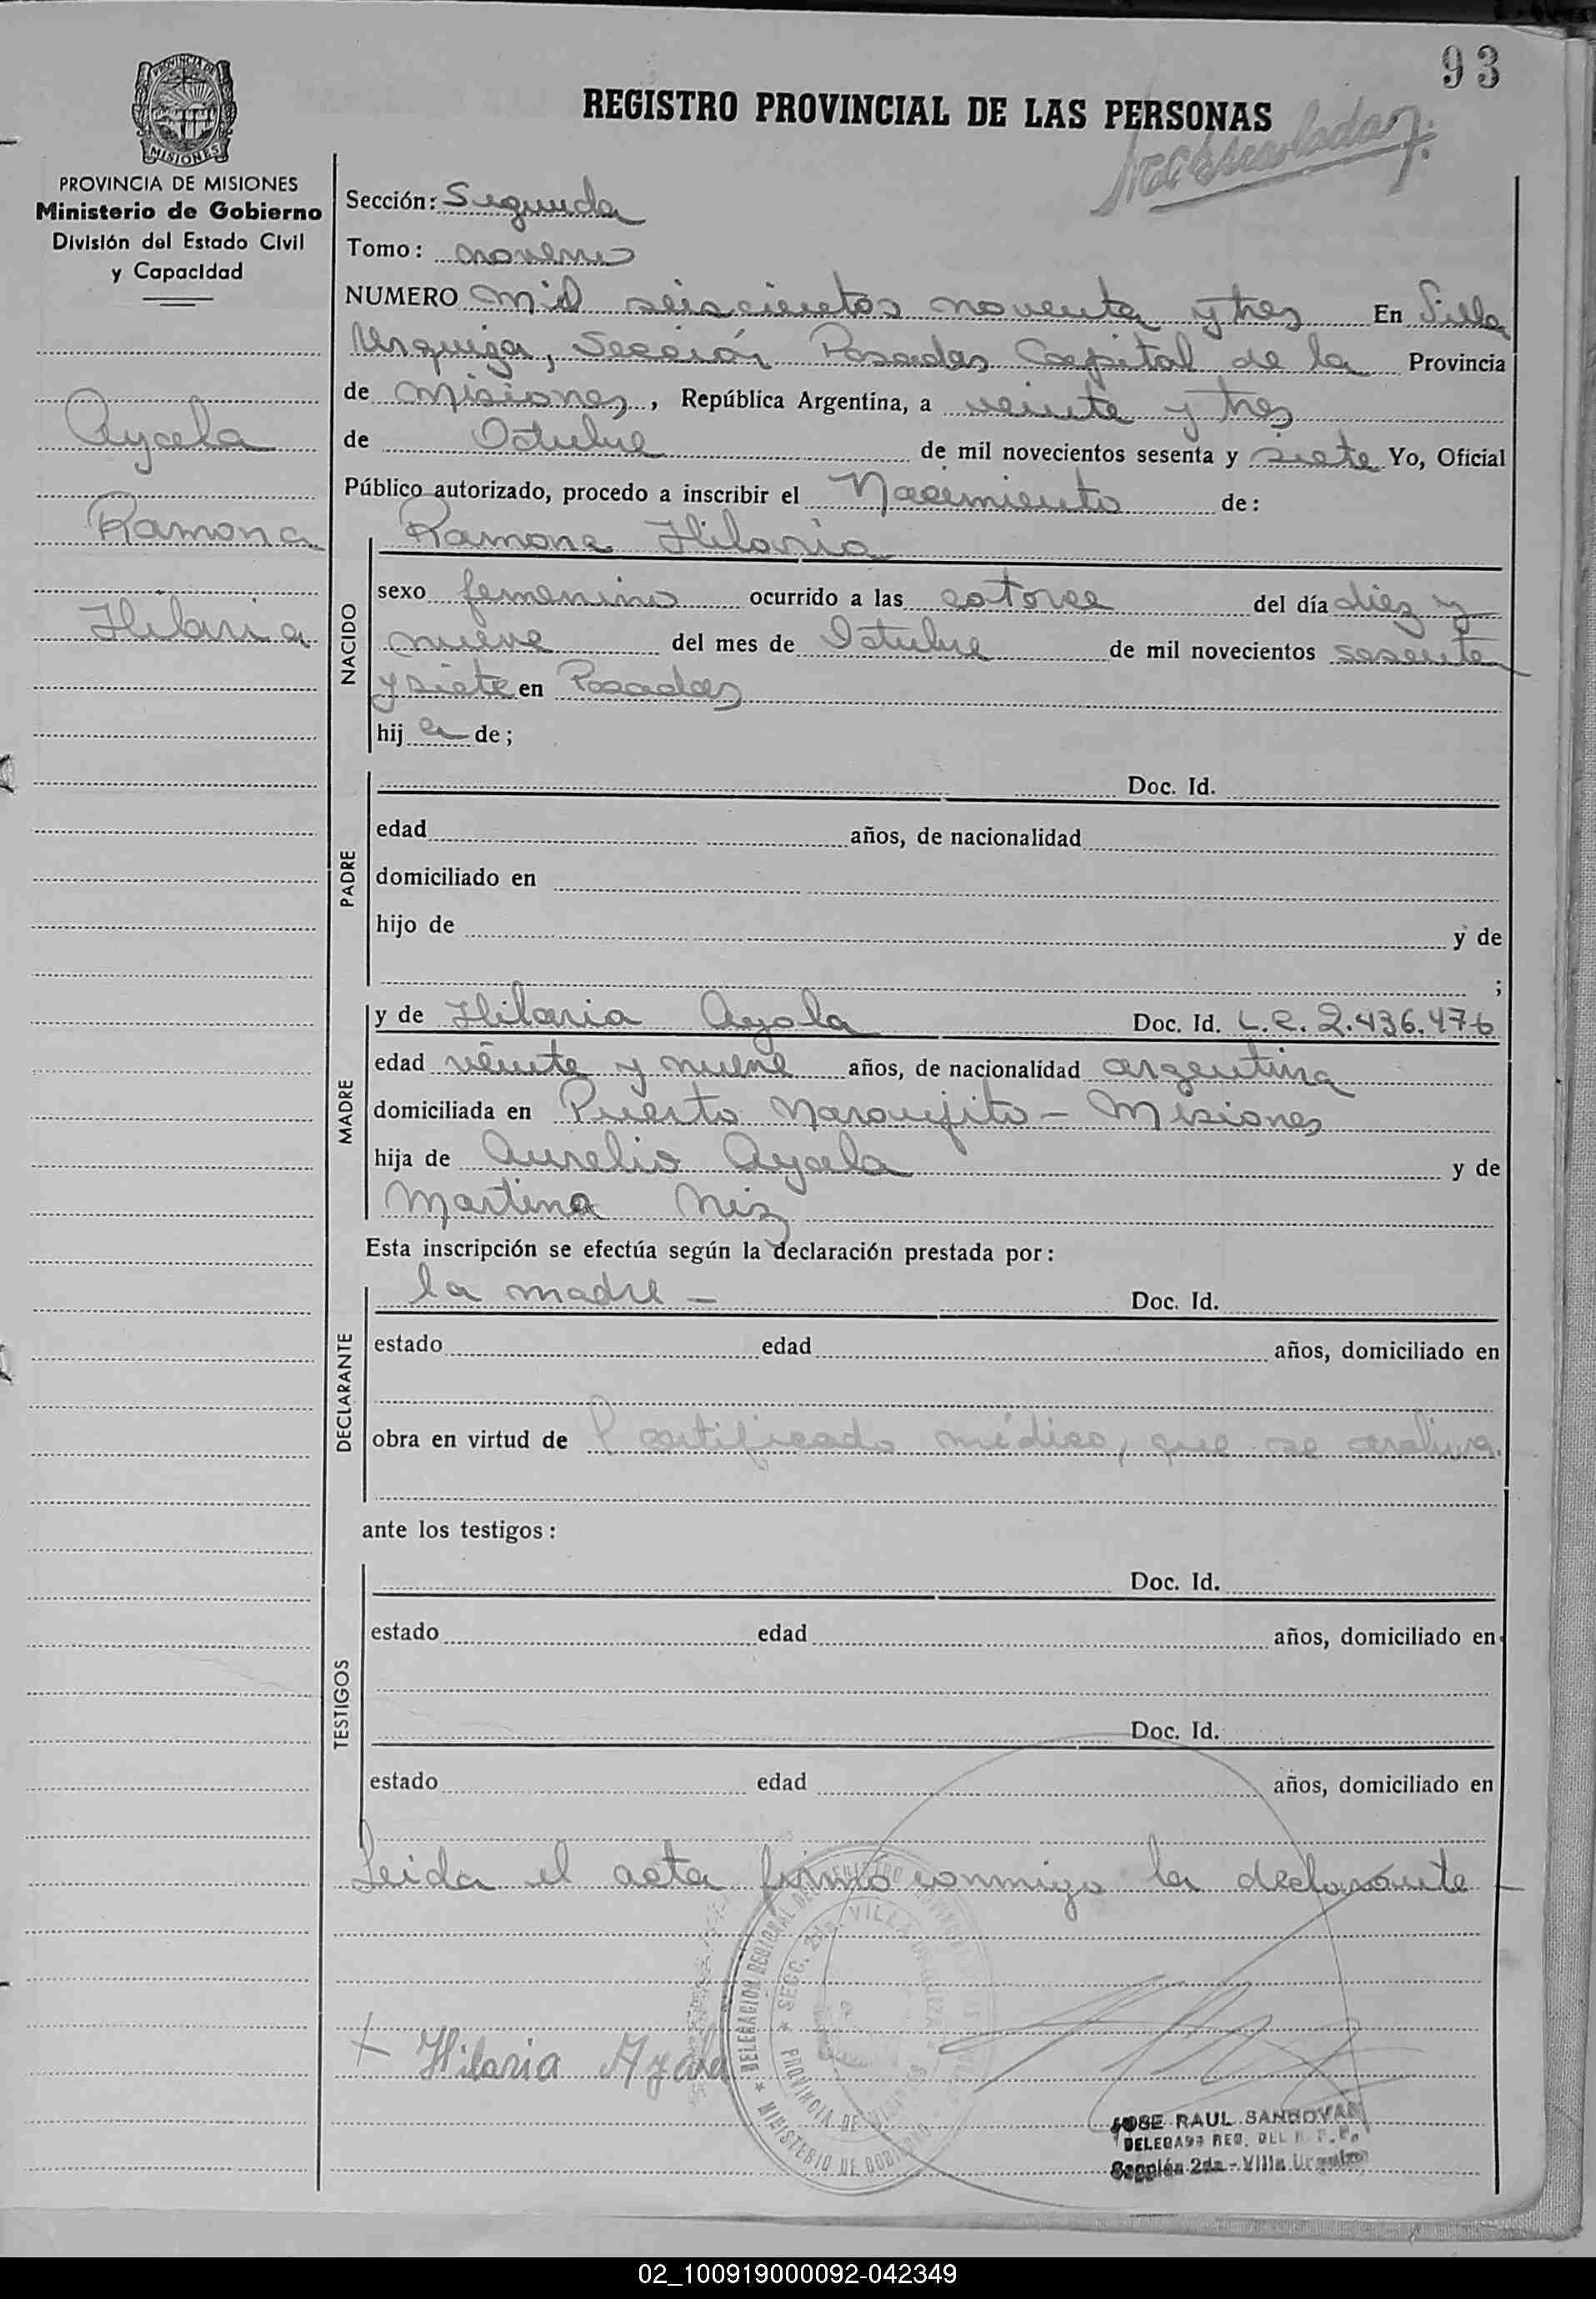 93
REGISTRO PROVINCIAL DE LAS PERSONAS
PROVINCIA DE MISIONES
MISIONES
PROVINCIA DE MISIONES
Ministerio de Gobierno
División del Estado Civil
y Capacidad
Ayala
Ramona
Hilaria
Sección: Segunda
Tomo: noveno
NUMERO mil seiscientos noventa y tres En Villa
Urquiza, Sección Posadas Capital de la Provincia
de Misiones, República Argentina, a veinte y tres
de Octubre de mil novecientos sesenta y siete Yo, Oficial
Público autorizado, procedo a inscribir el Nacimiento de:
NACIDO
Ramona Hilaria
sexo femenino ocurrido a las catorce del día diez y
nueve del mes de Octubre de mil novecientos sesenta
y siete en Posadas
hij a de;
PADRE
Doc. Id.
edad años, de nacionalidad
domiciliado en
hijo de y de
;
MADRE
y de Hilaria Ayala Doc. Id. L.C. 2.436.476
edad veinte y nueve años, de nacionalidad argentina
domiciliada en Puerto Naranjito - Misiones
hija de Aurelio Ayala y de
Martina Niz
Esta inscripción se efectúa según la declaración prestada por:
DECLARANTE
la madre - Doc. Id.
estado edad años, domiciliado en
obra en virtud de certificado médico, que se archiva.
ante los testigos:
TESTIGOS
Doc. Id.
estado edad años, domiciliado en
Doc. Id.
estado edad años, domiciliado en
Leida el acta firmó conmigo la declarante -
DELEGACION REGIONAL DEL REGISTRO
MINISTERIO DE GOBIERNO
SECC. 2da. VILLA URQUIZA
PROVINCIA DE MISIONES
Hilaria Ayala
JOSE RAUL SANDOVAL
DELEGADO REG. DEL R. P. P.
Sección 2da - Villa Urquiza
02_100919000092-042349